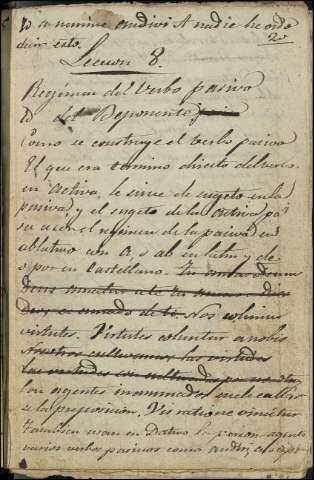 a nemine audivi A nadie he oido
decir esto.
20
Leccion 8.
Regimen del verbo pasivo
Del Deponente
Como se construye el verbo pasivo
El que era termino directo del verbo
en activa, le sirve de sugeto en la
pasiva, y el sugeto de la activa pa
sa a ser el regimen de la pasiva en
ablativo con a, o ab en latin y de
o por en Castellano.
Dios es amado de ti Nos colimus
virtutes. Virtutes coluntur a nobis
Nosotros cultivamos las virtudes
las virtudes son cultivadas por nosotros
los agentes inanimados suele callarse
la preposicion. Vis ratione vincitur
Tambien usan en Dativo la persona agente
varios verbos pasivos como audior,